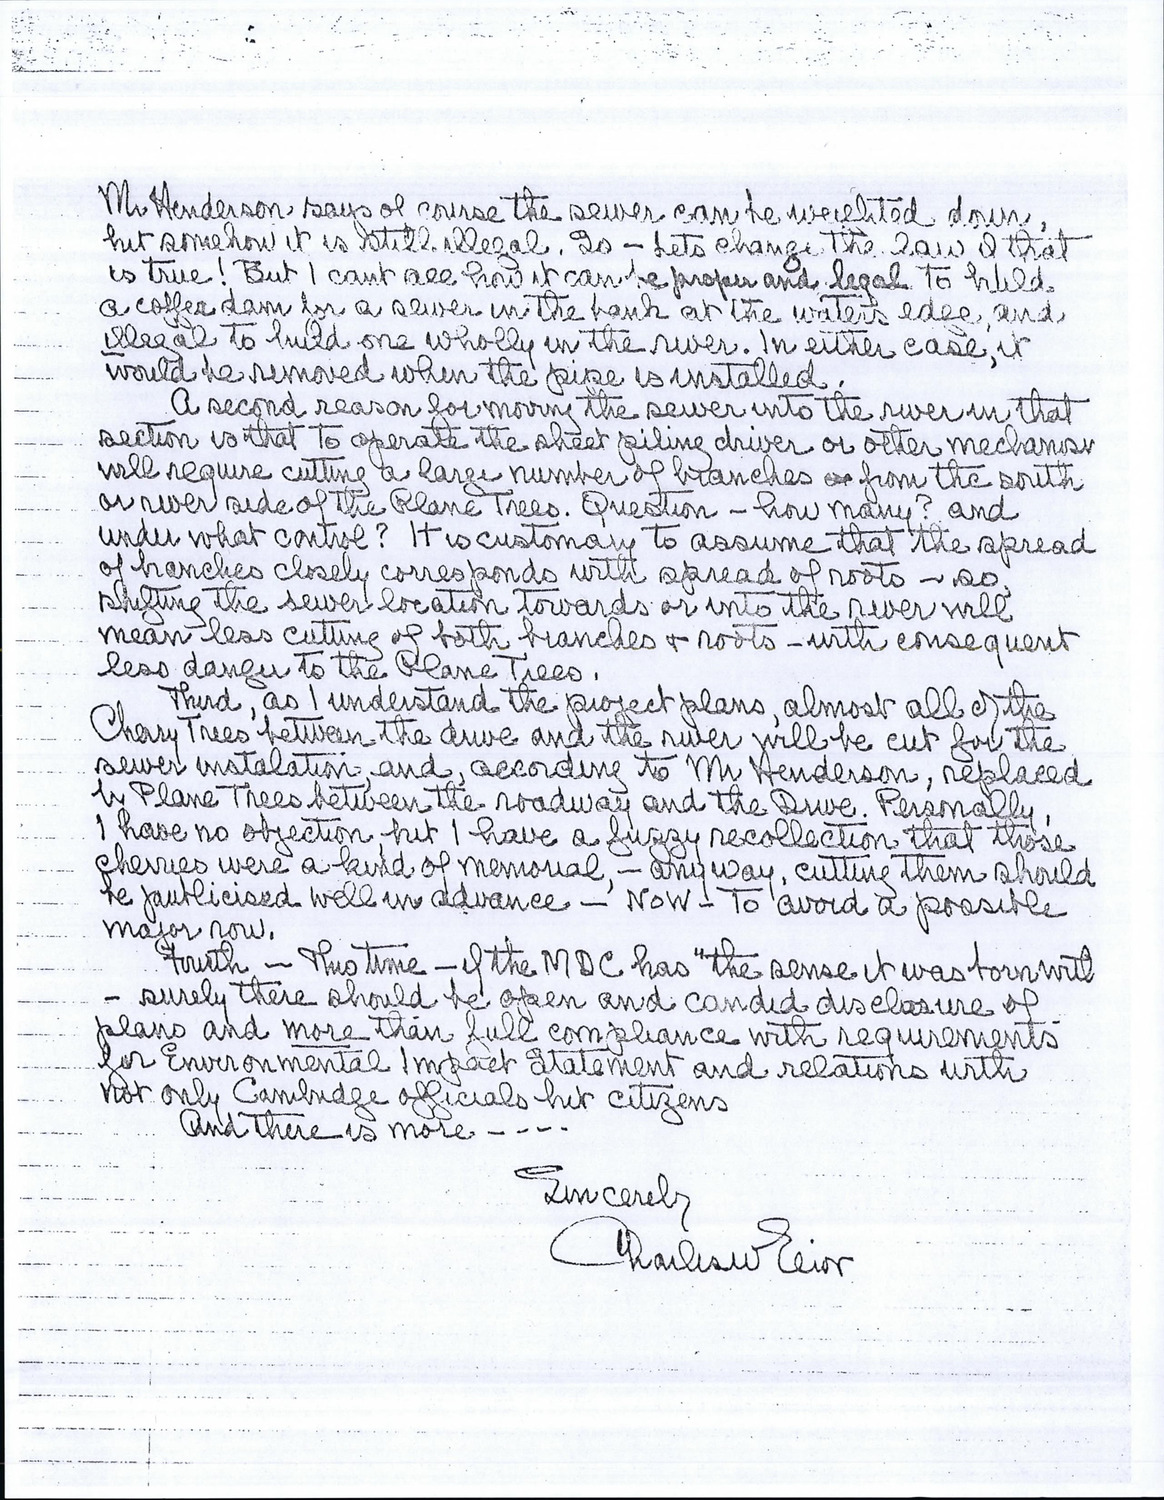 Mr Henderson says of course the sewer can be weighted down,
but somehow it is still illegal. So - Lets change the law if that
is true! But I cant see how it can be proper and legal to build
a coffer dam for a sewer in the bank at the waters edge, and
illegal to build one wholly in the river. In either case, it
would be removed when the pipe is installed.
A second reason for moving the sewer into the river in that
section is that to operate the sheet piling driver or other mechanism
will require cutting a large number of branches from the south
or river side of the Plane Trees. Question - how many? and
under what control? It is customary to assume that the spread
of branches closely corresponds with spread of roots - so,
shifting the sewer location towards or into the river will
mean less cutting of both branches + roots - with consequent
less danger to the Plane Trees.
Third, as I understand the project plans, almost all of the
Cherry Trees between the drive and the river will be cut for the
sewer instalation, and, according to Mr Henderson, replaced
by Plane Trees between the roadway and the Drive. Personally,
I have no objection, but I have a fuzzy recollection that those
cherries were a kind of memorial, - anyway, cutting them should
be publicised well in advance - NOW - To avoid a possible
major row.
Fourth - This time - if the MDC has "the sense it was born with
- surely there should be open and candid disclosure of
plans and more than full compliance with requirements
for Environmental Impact Statement and relations with
not only Cambridge officials but citizens
And there is more - - - -
Sincerely
Charles W Eliot